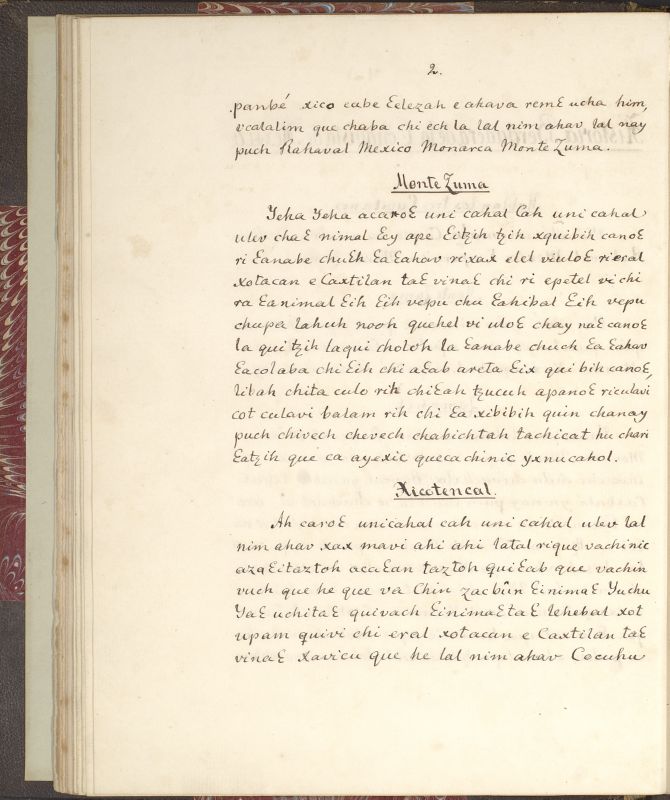 2.
panbé xico cube Eelezah e ahava remE ucha him,
vcalalim que chaba chi ech la lal nim ahav lal nay
puch Rahaval Mexico Monarca Monte Zuma.
Monte Zuma
Yeha Yeha acaroE uni cahal Cah uni cahal
ulev chaE nimal Eey ape Eitzih tzih xquibih canoE
ri Eanabe chuEh Ea Eahav rixax elel viuloE rieral
xotacan e Caxtilan taE vinaE chi ri epetel vi chi
ra Eanimal Eih Eih vepu chu Eahibal Eih vepu
chupa lahuh nooh quehel vi uloE chay naE canoE
la qui tzih laqui choloh la Eanabe chuch Ea Eahav
Eacolaba chi Eih chi aEab areta Eix qui bih canoE,
libah chita culo rih chiEah tzucuh apanoE riculavi
cot culavi balam rih chi Ea xibibih quin chanay
puch chivech chevech chabichtah tachicat hu chari
Eatzih que ca ayexic quecachinic yxnucahol.
Xicotencal.
Ah caroE unicahal cah uni cahal ulev lal
nim ahav xax mavi ahi ahi latal rique vachinic
azaEitaztoh acaEan taztoh quiEab que vachin
vuch que he que va Chin zacbûn EinimaE Yuchu
YaE uchitaE quivach EinimaEtaE lehebal xot
upam quivi chi eral xotacan e Caxtilan taE
vinaE xavicu que he lal nim ahav Cocuhu